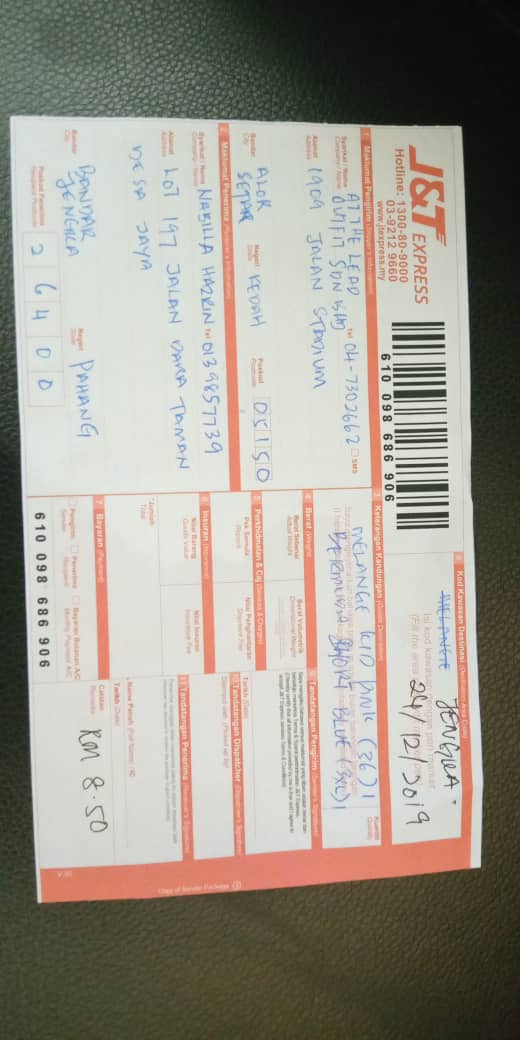 J&T EXPRESS
Hotline: 1300-80-9000
03-9212 9660
www.jtexpress.my
610 098 686 906
Kod Kawasan Destinasi (Destination Area Code)
JENGKA
24/12/2019
1 Maklumat Pengirim (Shipper's Information)
Syarikat / Nama
Company / Name
AT THE LEAD
OUTFIT SDN BHD
Tel 04-7302662
SMS
Alamat
Address
1909 JALAN STADIUM
Bandar
City
ALOR
SETAR
Negeri
State
KEDAH
Poskod
Postcode
05150
2 Maklumat Penerima (Receiver's Information)
Syarikat / Nama
Company / Name
NABILLA HAZRIN
Tel 0139857739
Alamat
Address
LOT 197 JALAN DARA TAMAN
DESA JAYA
Bandar
City
BANDAR
JENGKA
Negeri
State
PAHANG
Poskod Penerima
Receiver Postcode
26400
3 Keterangan Kandungan (Goods Description)
Kuantiti
Quantity
MELANGE KID PINK (36) 1
BERMUDA SHORT BLUE (3XL) 1
4 Berat (Weight)
Berat Sebenar
Actual Weight
Berat Volumetrik
Dimensional Weight
5 Perkhidmatan & Caj (Services & Charges)
Pek Semula
Repack
Nilai Penghantaran
Shipment Fee
6 Insuran (Insurance)
Nilai Barang
Goods Value
Nilai Insuran
Insurance Fee
*Jumlah
Total
7 Bayaran (Payment)
Pengirim
Sender
Penerima
Recipient
Bayaran Bulanan A/C
Monthly Payment A/C
610 098 686 906
9 Tandatangan Pengirim (Shipper's Signature)
Tarikh (Date)
10 Tandatangan Dispatcher (Dispatcher's Signature)
11 Tandatangan Penerima (Receiver's Signature)
Nama Penuh (Full Name) / IC
Tarikh (Date)
Catatan
Remarks
RM 8.50
Copy of Sender Package